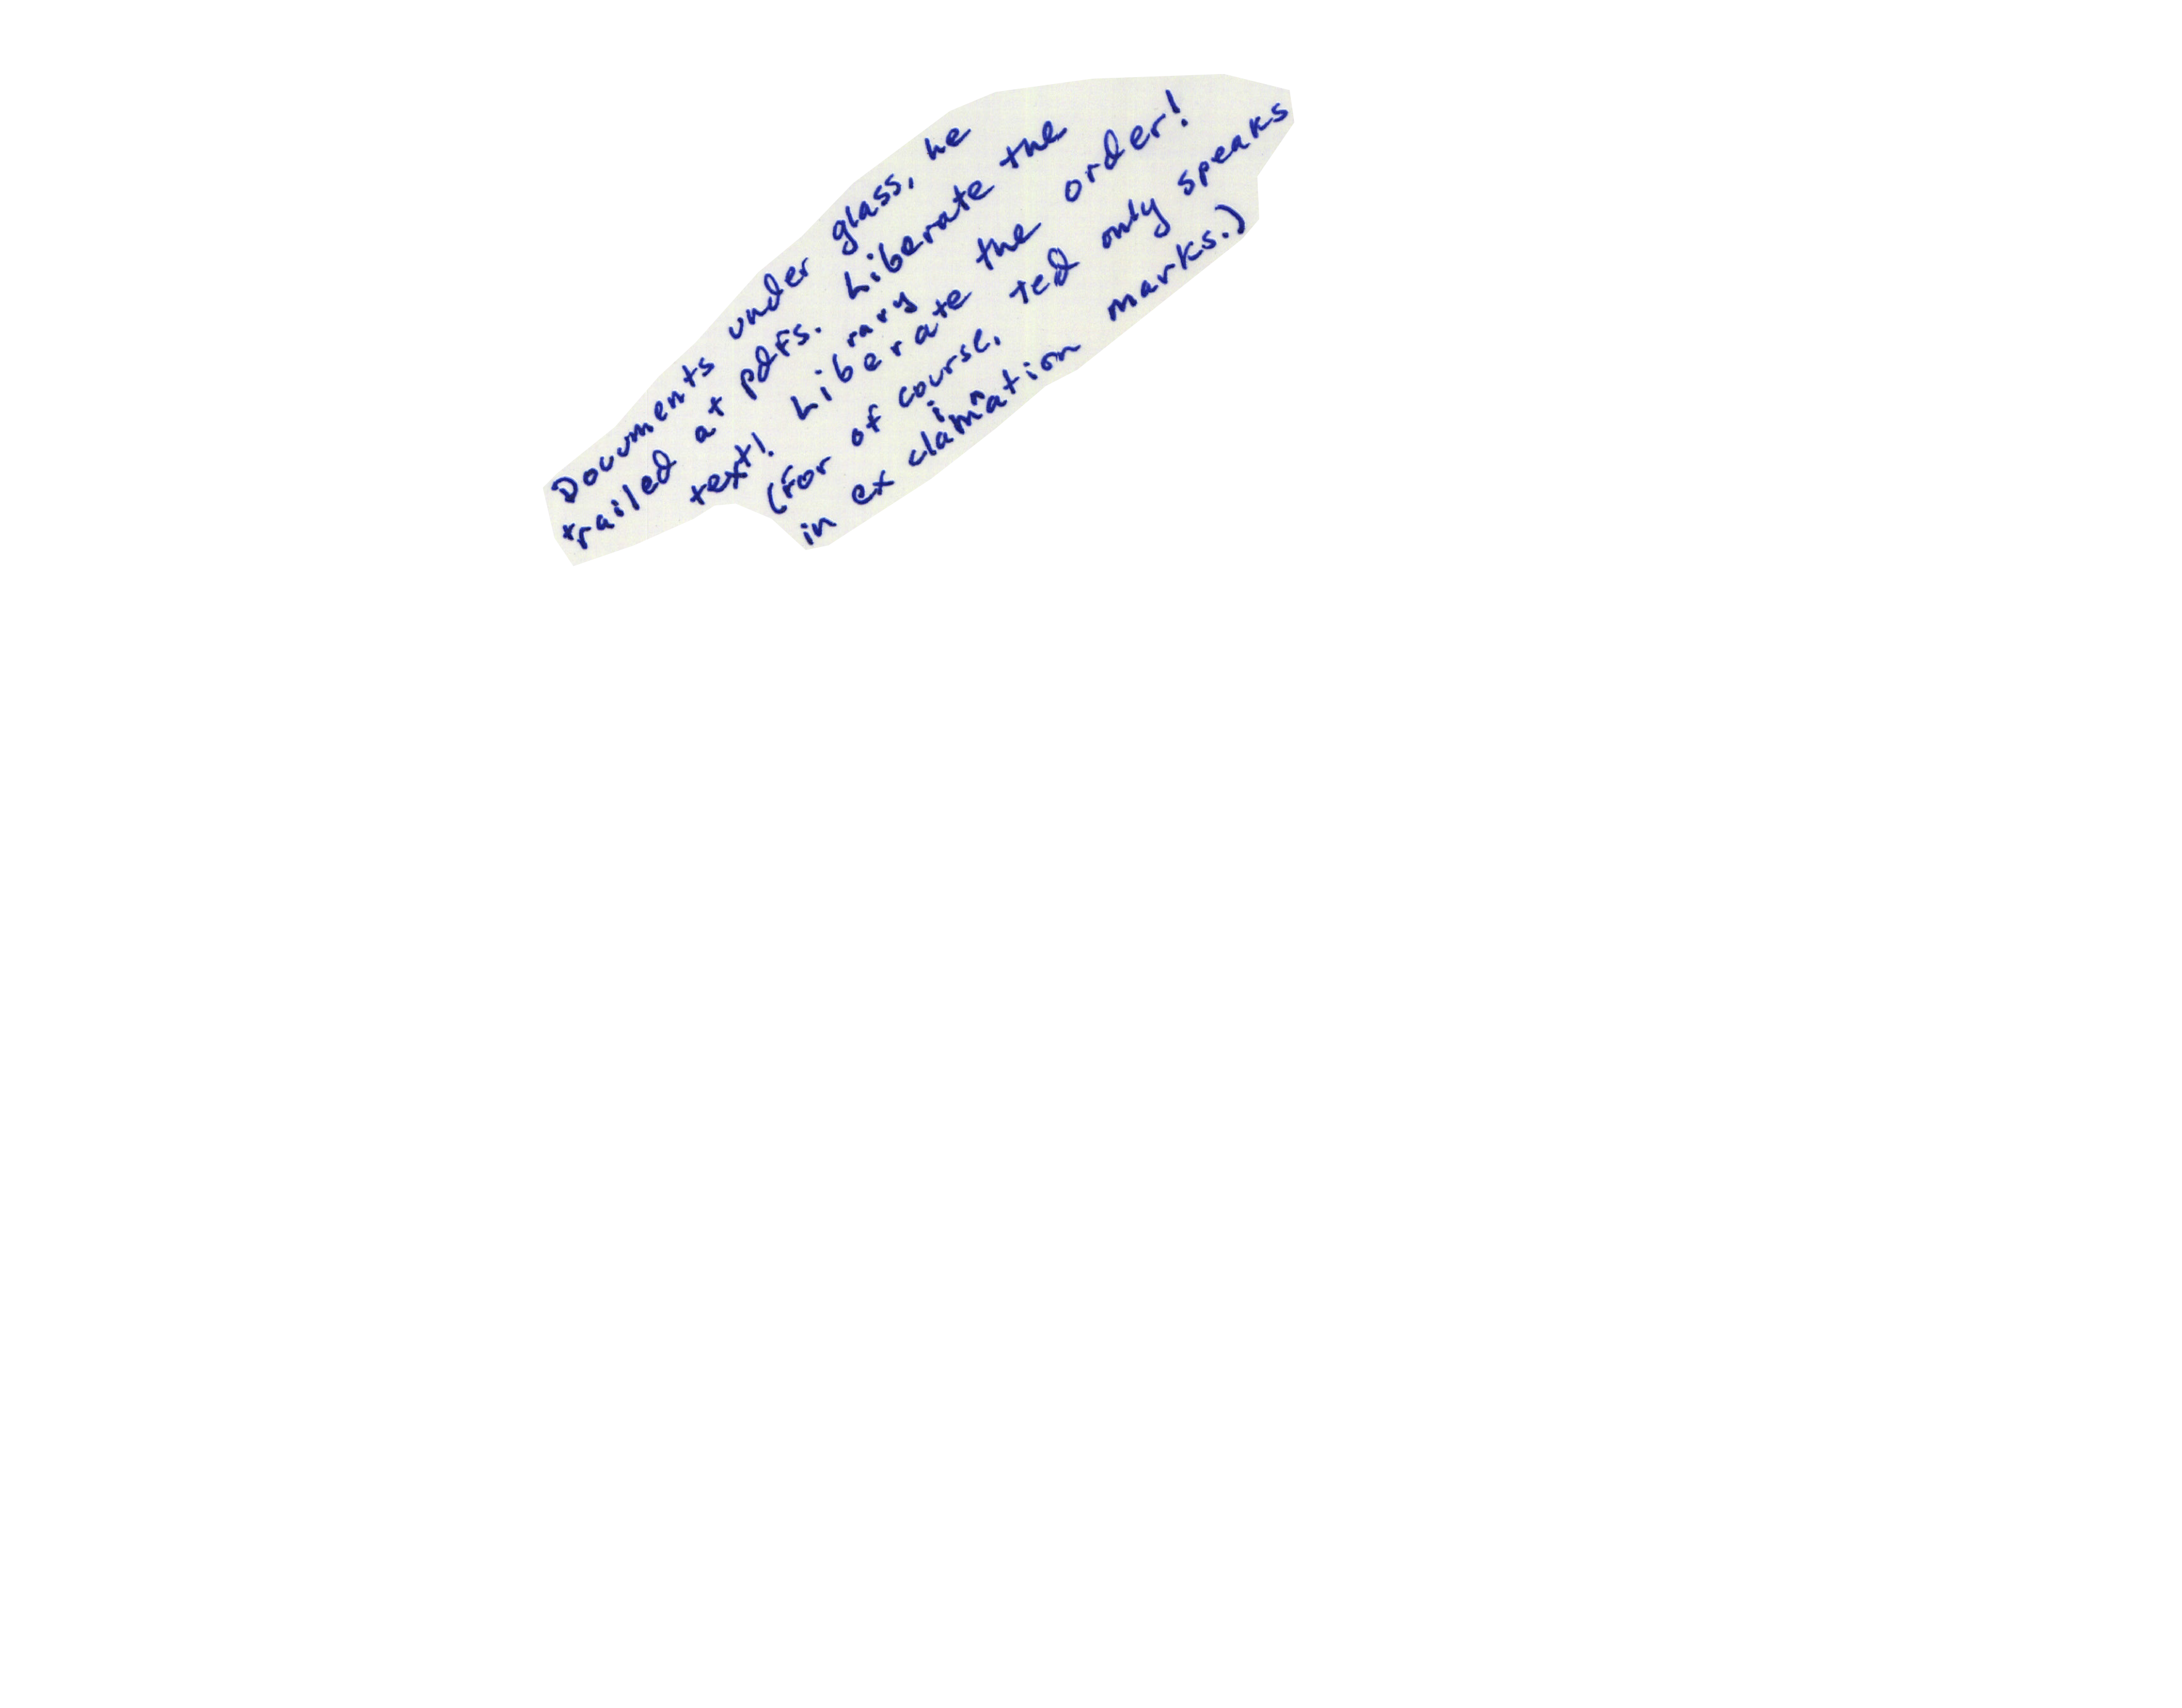 Documents under glass, he
trailed at pdfs. Liberate the
rary
text! Liberate the order!
(For of course, Ted only speaks
in
in ex clamation marks.)